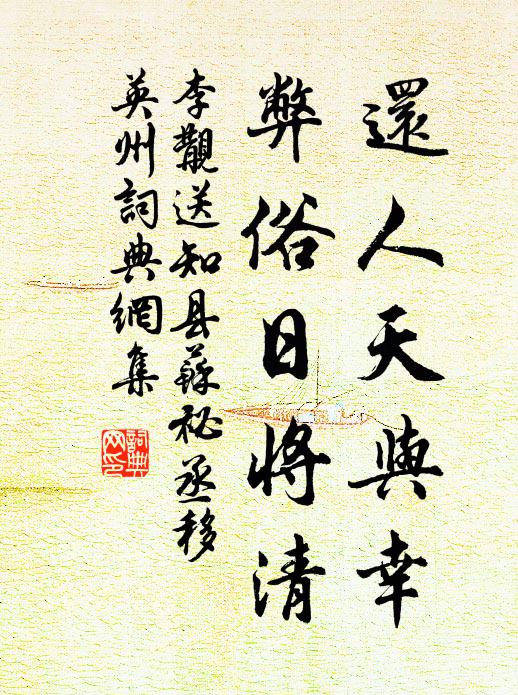 還人天與幸
弊俗日將清
李覯送知县蘇祕丞移
英州詞典網集
詞典
网印